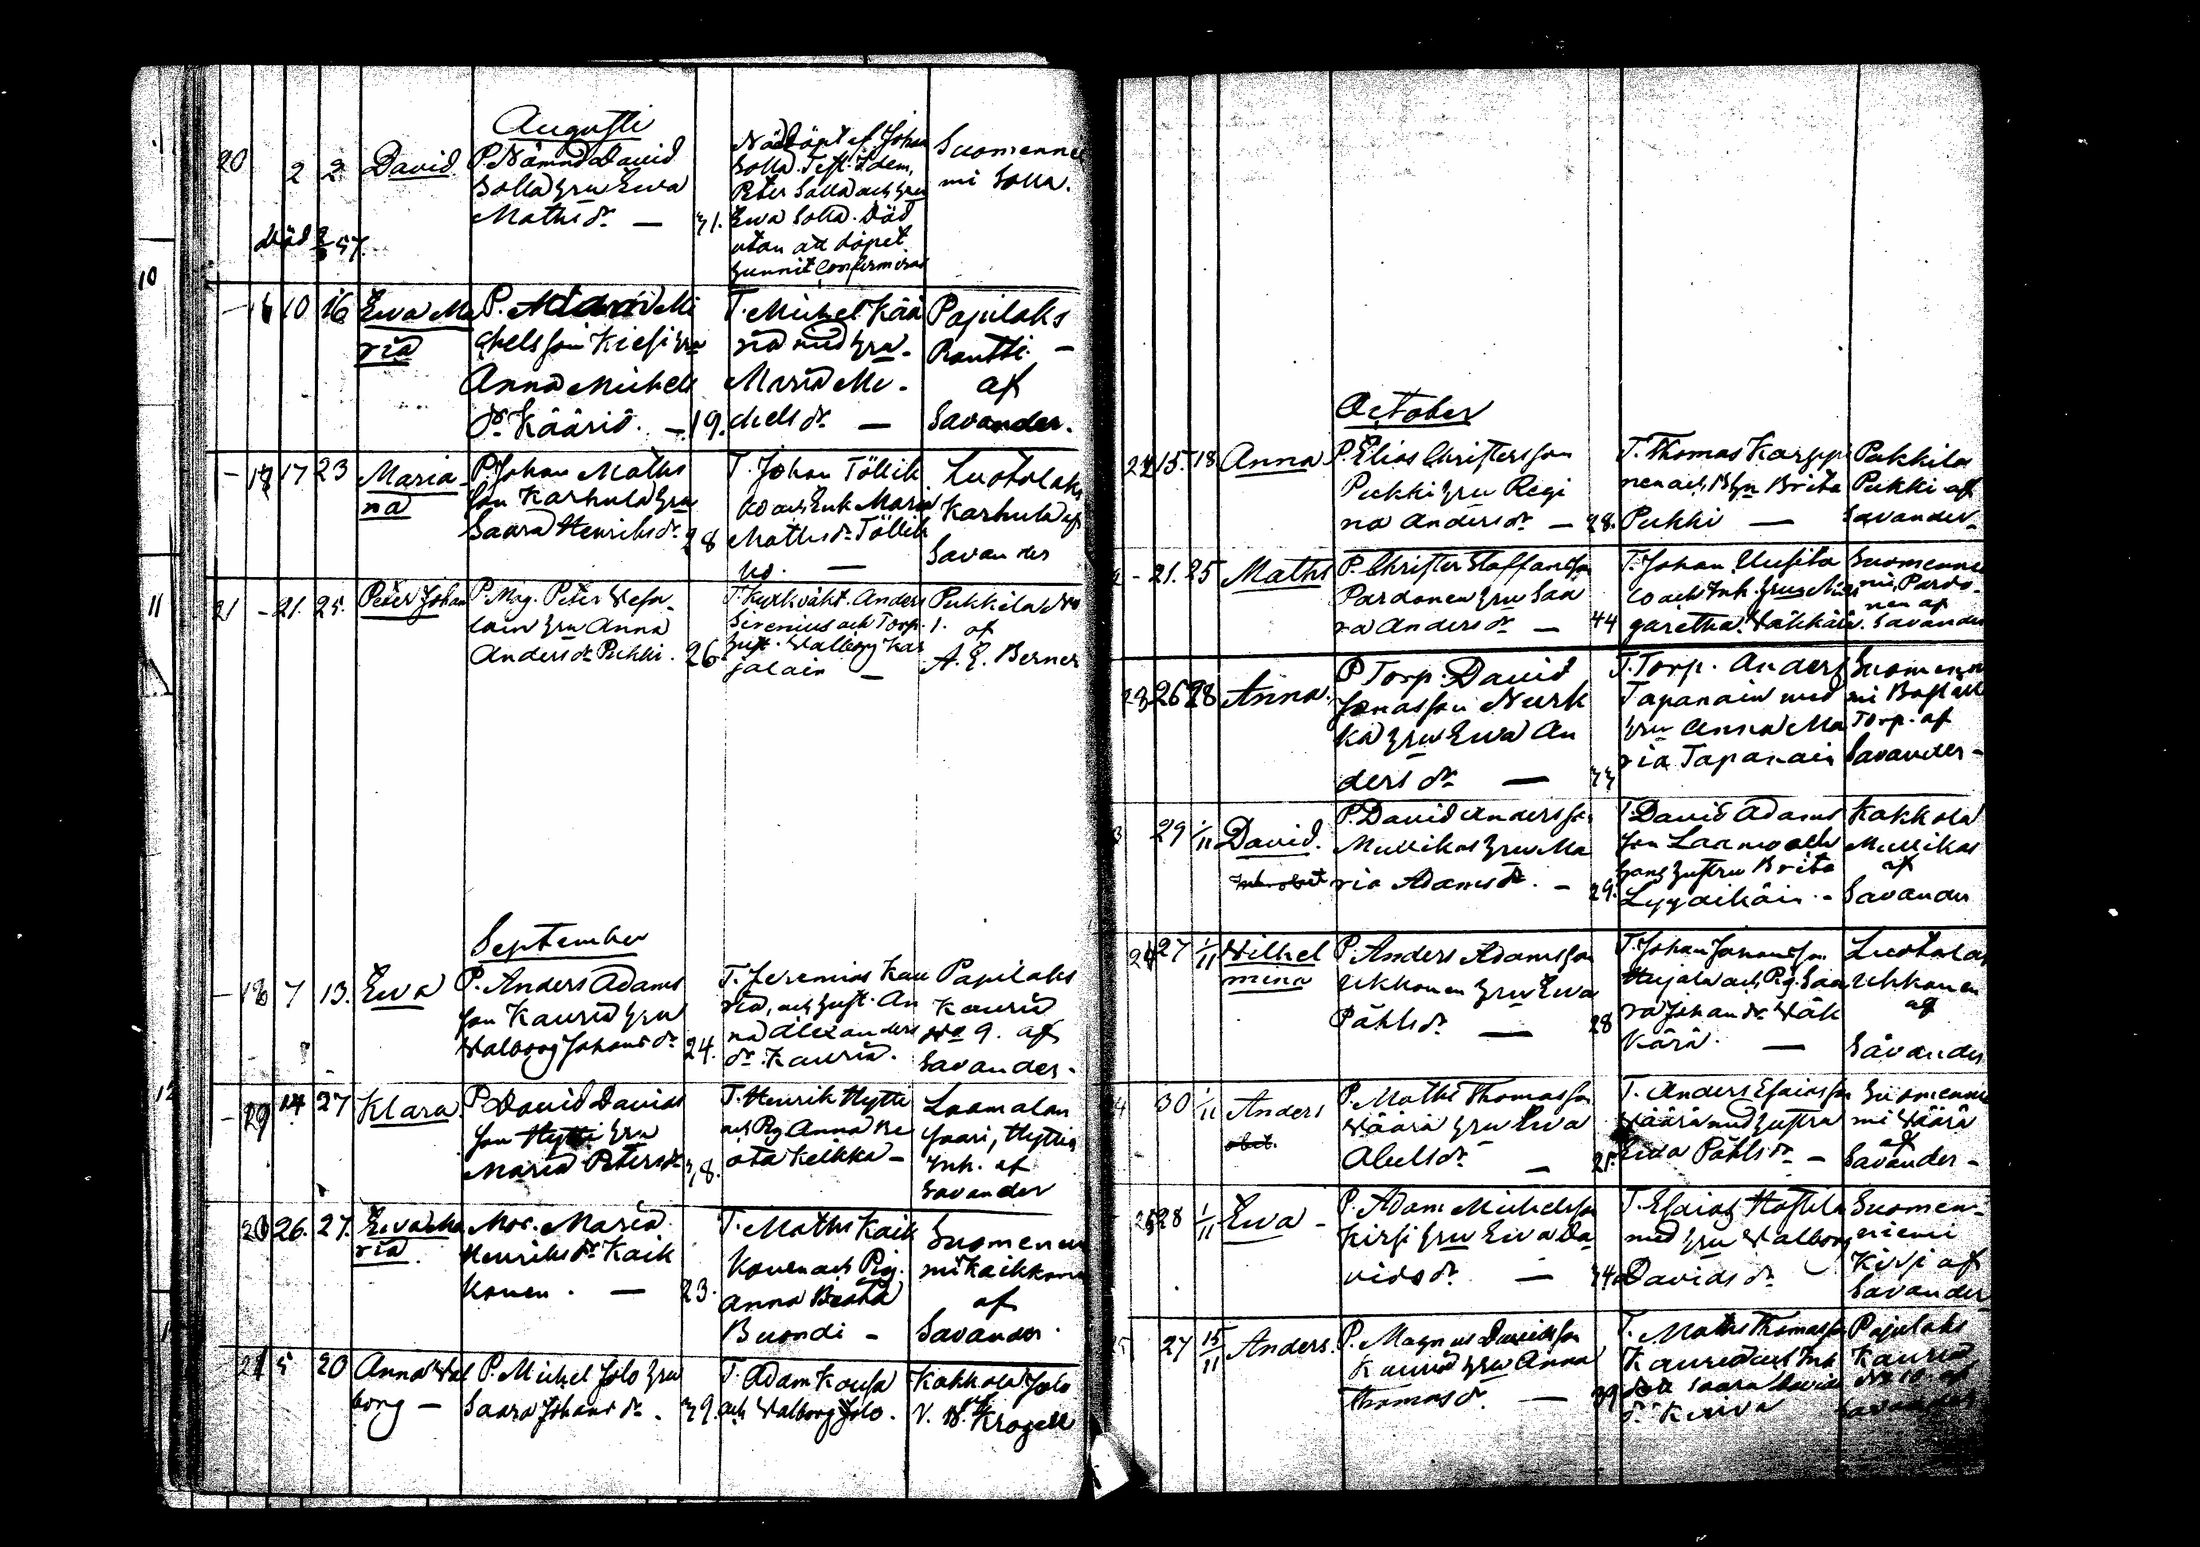 Augusti
20 2 2 David P. Nämnd. David
Solla hru Ewa
Maths dr — 31.
Nöddöpt af Johan
Solla. Test. Idem,
Peter Solla och hru
Ewa Solla. Död
utan att döpet
hunnit confirmeras
Suomennie
mi Solla.
död 57.
10
16 10 16 Ewa Ma
ria
P. Adam Mi
chelsson Kiesi hru
Anna Michels
dr Kääriä. — 19.
T. Michel Kää
riä med hru
Maria Mi-
chels dr —
Papilaks
Rautti. —
af
Savander.
17 23 Maria
na
P. Johan Maths
son Karhula hru
Saara Henriks dr 28
T. Johan Töllik
ko och Enk. Maria
Maths dr Töllik
ko. —
Luotolaks
Karhula af
Savander
11
21 - 21. 25. Peter Johan
P. Mag. Peter
lain hru Anna
Anders dr Pukki. 26.
T. Kyrkväkt. Anders
Sirenius och Torp.
hust. Walborg Kar
jalain —
Pukkila No
1. af
A. E. Berner
September
7 13. Ewa
P. Anders Adams
son Kauria hru
Walborg Johans dr 24.
T. Jeremias Kau
ria, och hust. An
na Alexanders
dr Kauria.
Papilaks
Kauria
No 9. af
Savander.
12
14 27 Klara
P. David Davids
son Hytti hru
Maria Peters dr 38.
T. Henrik Hytti
och Pig. Anna Be
ata Keikka —
Laamalan
saari, Hyttis
Inh. af
Savander
20 26. 27. Ewa Ma
ria
Mor. Maria
Henriks dr Kaik
konen. — 23.
T. Maths Kaik
konen och Pig.
Anna Beata
Buondi —
Suomennie
mi Kaikkonen
af
Savander.
21 5 20 Anna Wal
borg —
P. Michel Jolo hru
Saara Johans dr. 39.
T. Adam Kousa
och Walborg Jolo.
Kakkola Jolo
V. P. Krogell
October
15. 18 Anna
P. Elias Christersson
Pukki hru Regi
na Anders dr — 28.
T. Thomas Karppi
nen och Bhn Brita
Pukki —
Pukkila
Pukki af
Savander.
- 21. 25 Maths
P. Christer Staffansson
Pardonen hru Saa
ra Anders dr — 44
T. Johan Uusita
lo och Inh. hru Mar
garetha Wäkkärä.
Suomennie
mi, Pardo-
nen af
Savander
26 28 Anna.
P. Torp. David
Jonasson Nurk
ka hru Ewa An
ders dr — 33
T. Torp. Anders
Tapanain med
hru Anna Ma
ria Tapanain
Suomennie
mi Boställ
Torp. af
Savander —
29 1/11 David.
P. David Andersson
Mullikas hru Ma
ria Adams dr. — 29.
T. David Adams
son Laamo och
hans hustru Brita
Lyydikäin. —
Kakkola
Mullikas
af
Savander
27 1/11 Wilhel
mina
P. Anders Adamsson
Ukkonen hru Ewa
Påhls dr — 28
T. Johan Johansson
Hujala och Pig. Saa
ra Johans dr Wäk
kärä. —
Luotolax
Uhkonen
af
Savander
30 1/11 Anders
obiit.
P. Maths Thomasson
Wäärä hru Ewa
Abels dr — 25.
T. Anders Esaiasson
Wäärä med hustru
Ewa Påhls dr —
Suomennie
mi Wäärä
af
Savander —
28 1/11 Ewa —
P. Adam Michelsson
Kirsi hru Ewa Da
vids dr — 34
T. Esaias Hostila
med hru Walborg
Davids dr
Suomen-
niemi
Kirsi af
Savander
27 15/11 Anders.
P. Magnus Davidsson
Kauria hru Anna
Thomas dr. — 39
T. Maths Thomasson
Kauria och Inh
Saara Davids
dr
Papilaks
Kauria
No 10 af
Savander